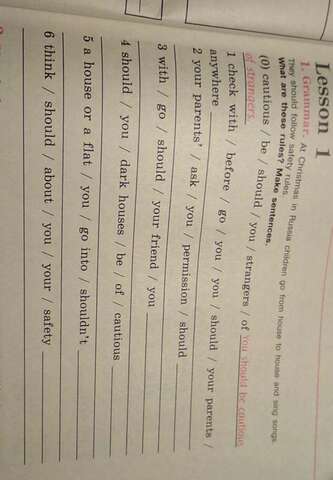 Lesson 1
1. Grammar. At Christmas in Russia children go from house to house and sing songs.
They should follow safety rules.
What are these rules? Make sentences.
(0) cautious / be / should / you / strangers / of You should be cautious
of strangers.
1 check with / before / go / you / you / should / your parents /
anywhere
2 your parents' / ask / you / permission / should
3 with / go / should / your friend / you
4 should / you / dark houses / be / of / cautious
5 a house or a flat / you / go into / shouldn't
6 think / should / about / you / your / safety